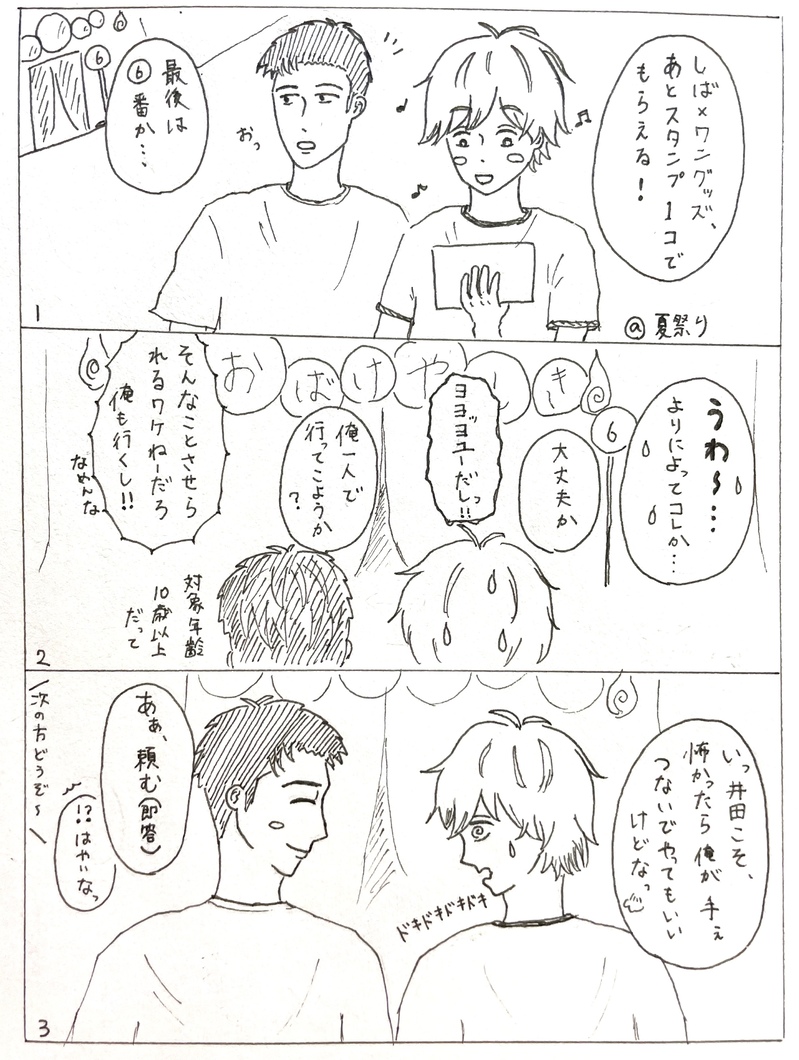 しば×ワングッズ、
あとスタンプ1コで
もらえる！
おっ
最後は
⑥番か…
6
@夏祭り
1
うわ〜…
よりによってコレか…
6
おばけやしき
大丈夫か
ヨヨッヨユーだしっ!!
俺一人で
行ってこようか
？
そんなことさせら
れるワケねーだろ
俺も行くし!!
なめんな
対象年齢
10歳以上
だって
2
いっ井田こそ、
怖かったら俺が手ぇ
つないでやってもいい
けどなっ
ドキドキドキドキ
あぁ、頼む(即答)
!?はやいなっ
次の方どうぞ〜
3